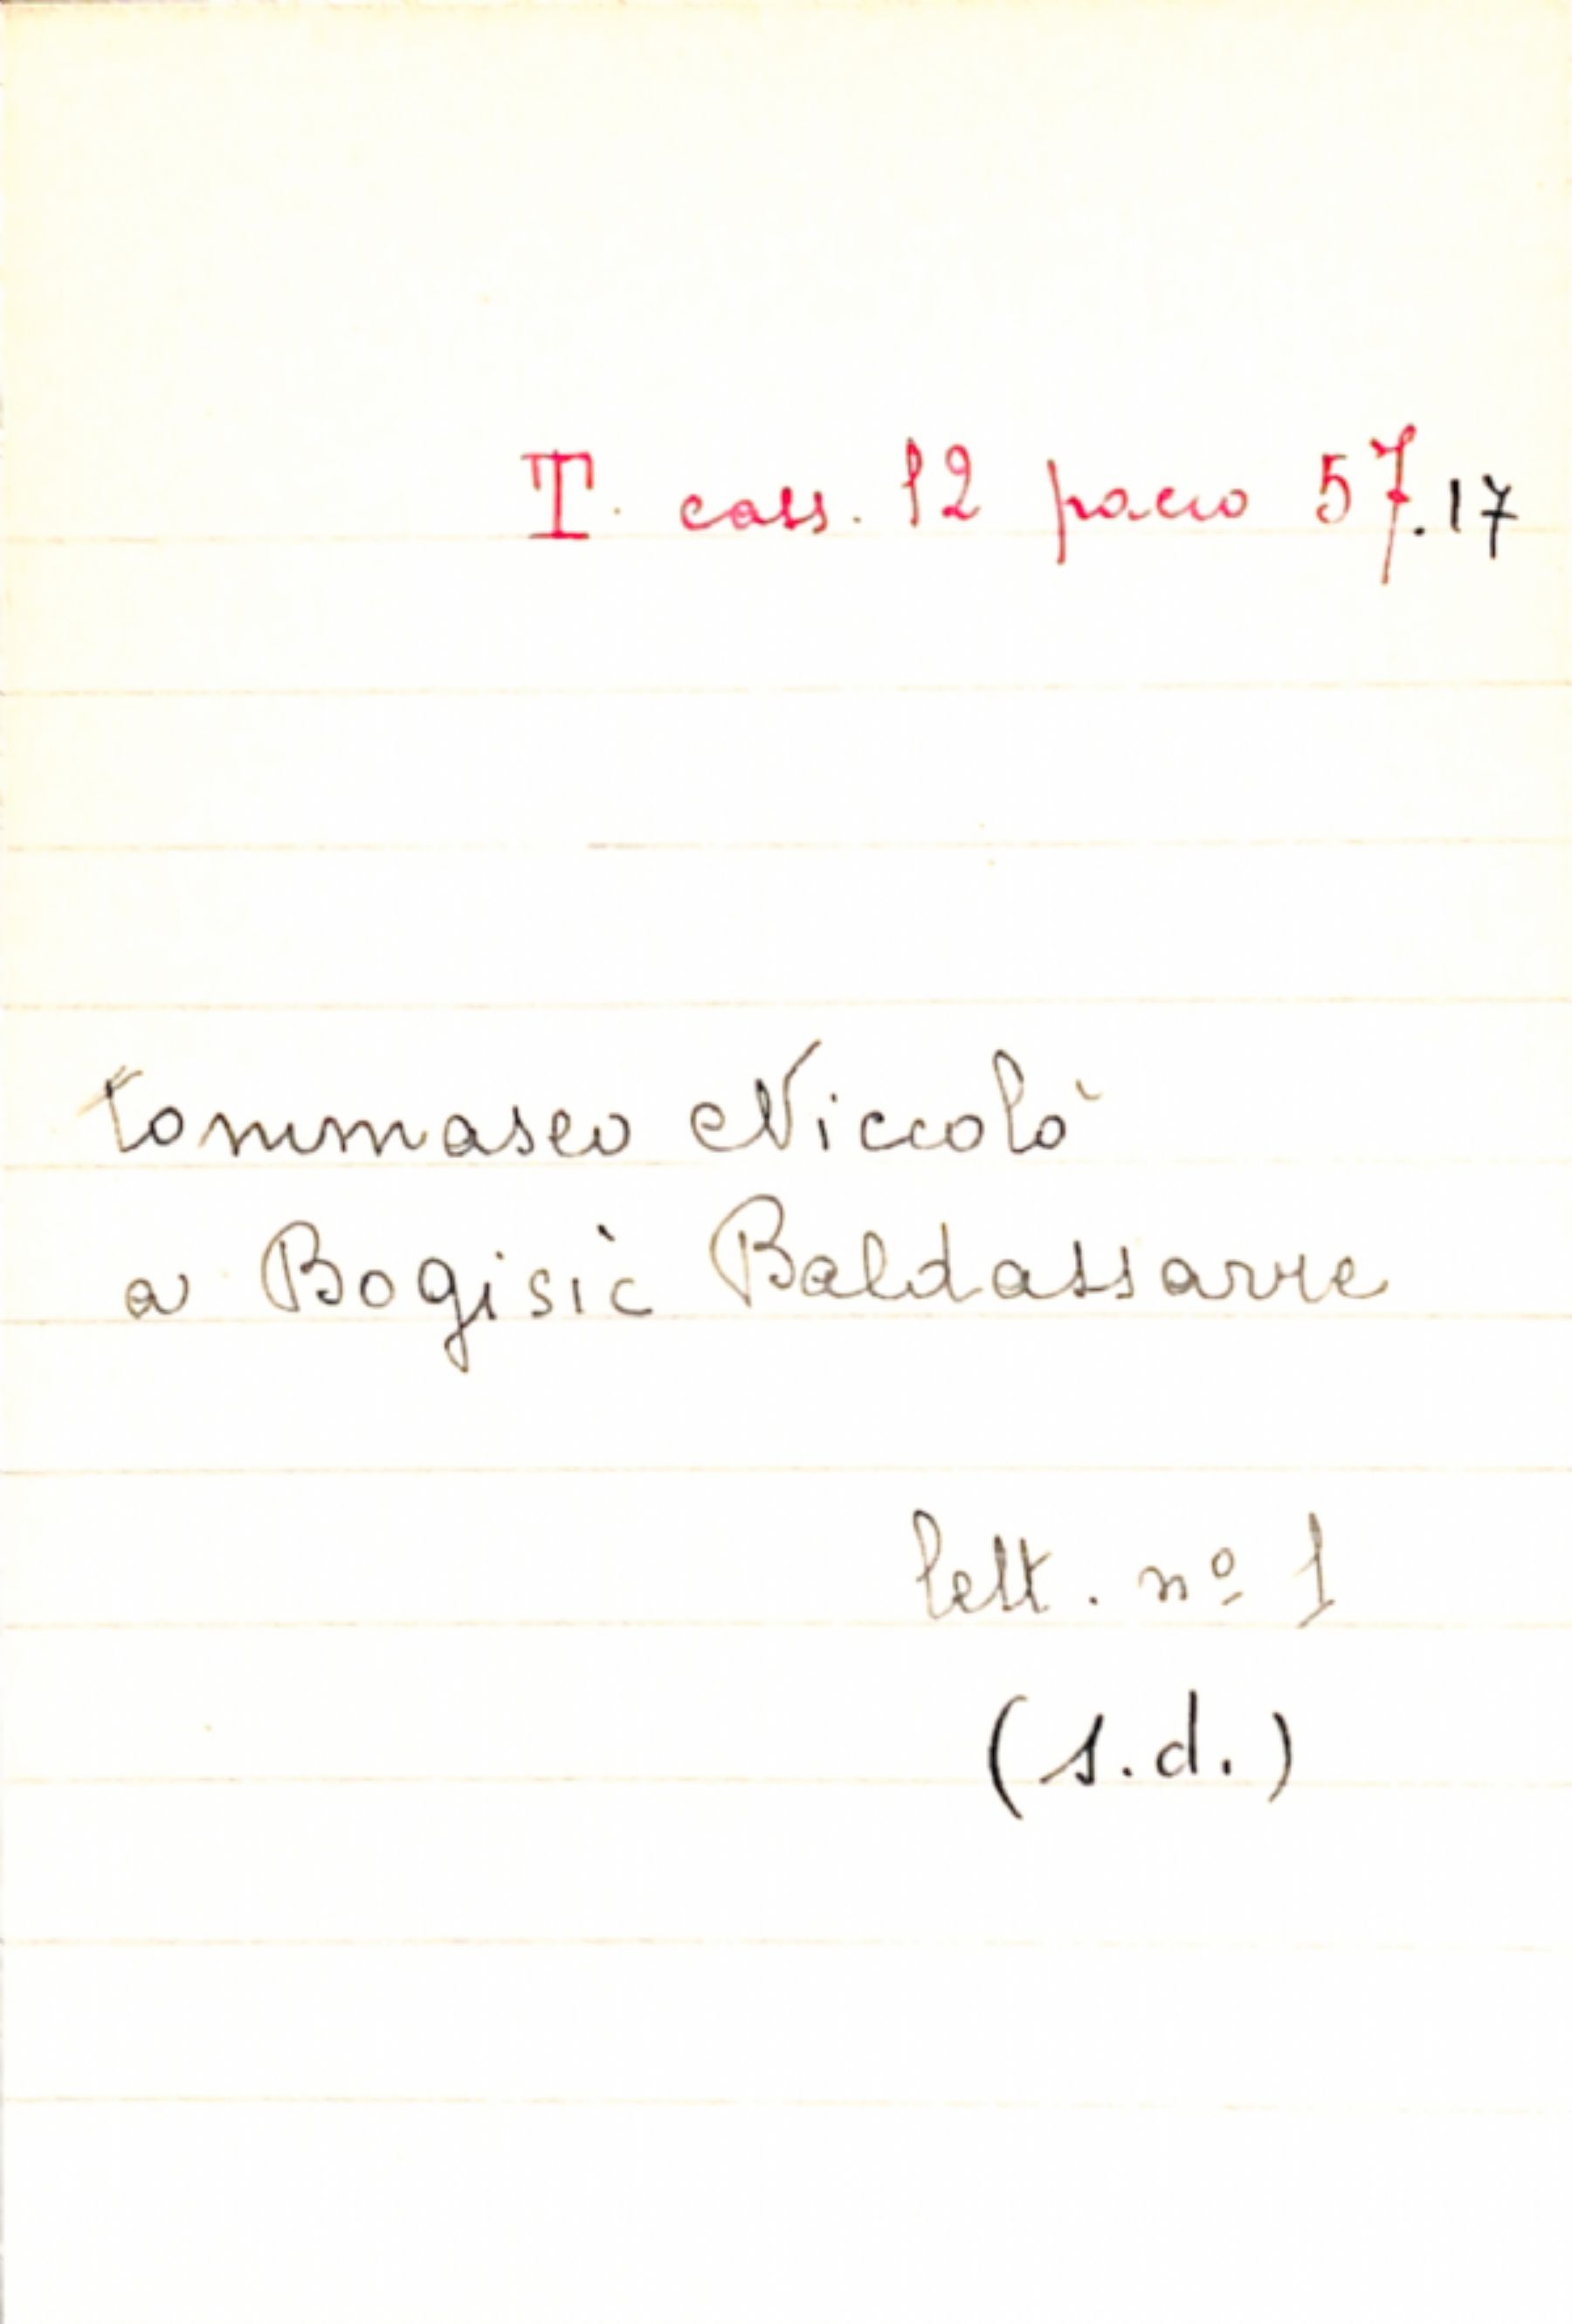 T. cass. 12 pacco 57.17
Tommaseo Niccolò
a Bogisic Baldassarre
lett. nº 1
(s.d.)